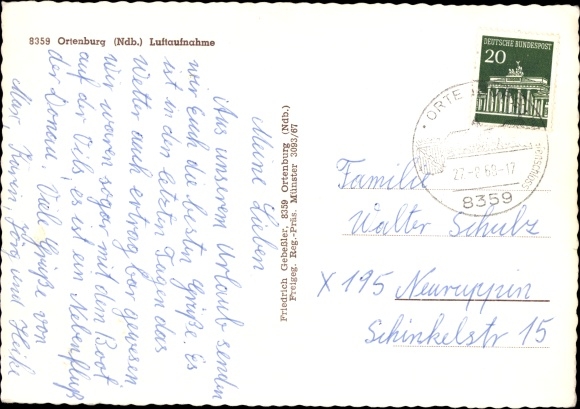 8359 Ortenburg (Ndb.) Luftaufnahme
Meine Lieben
Aus unserem Urlaub senden
wir Euch die besten Grüße. Es
ist in den letzten Tagen das
Wetter auch ertragbar gewesen
Wir warn sogar mit dem Boot
auf der Vils, es ist ein Nebenfluß
der Donau. Viele Grüße von
Max Karin Jörg und Heike
Friedrich Gebeßler, 8359 Ortenburg (Ndb.)
Freigeg. Reg.-Präs. Münster 3093/67
DEUTSCHE BUNDESPOST
20
27-2 68-17
8359
Familie
Walter Schulz
X 195 Neuruppin
Schinkelstr 15